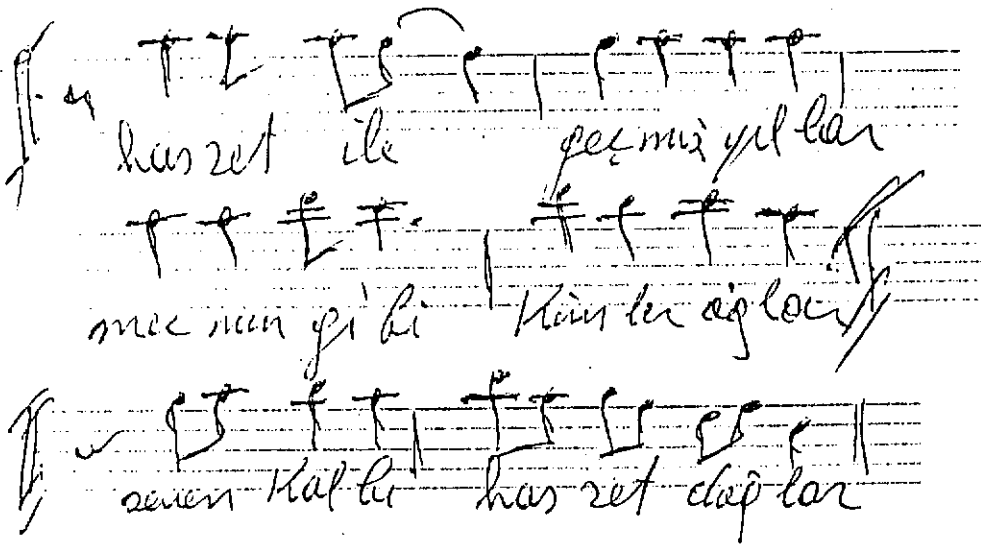 hasret ile geçmiş yıllar
mecnun gibi kimler ağlar
seven kalbi hasret dağlar